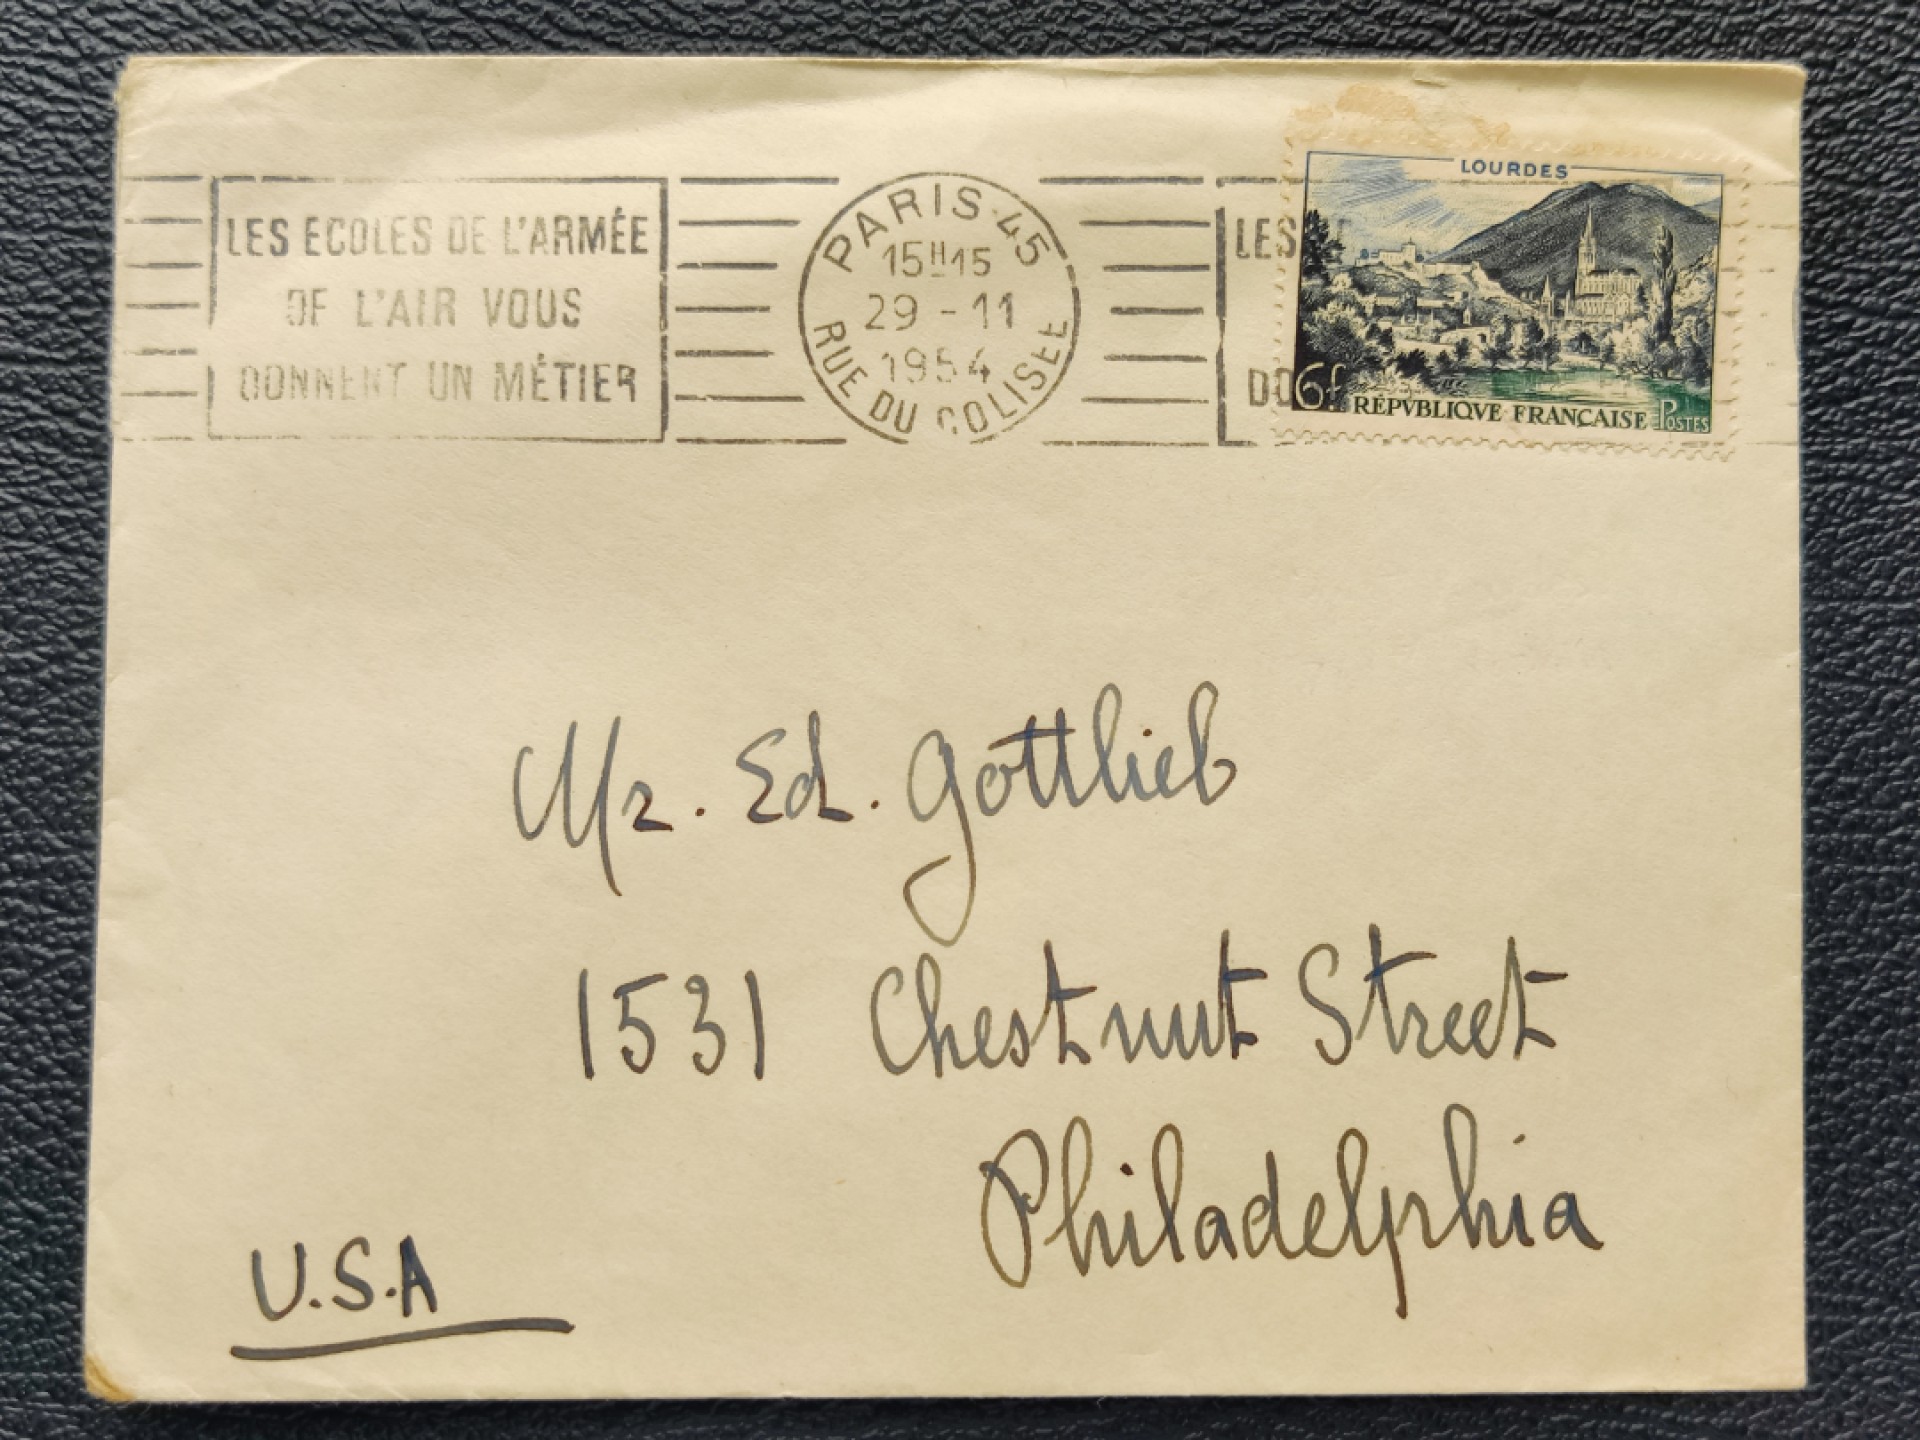 LES ECOLES DE L'ARMÉE
DE L'AIR VOUS
DONNENT UN MÉTIER
PARIS 45
15H15
29 - 11
1954
RUE DU COLISEE
LES
DO
LOURDES
6f RÉPVBLIQVE FRANÇAISE POSTES
Mr. Ed. Gottlieb
1531 Chestnut Street
Philadelphia
U.S.A